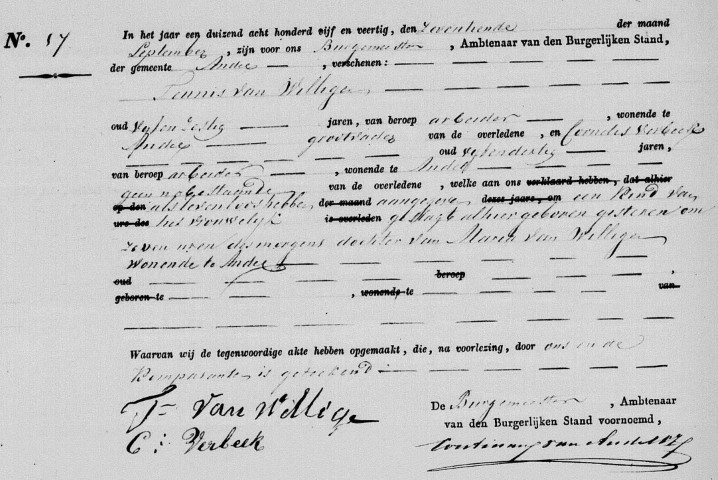 No. 17
In het jaar een duizend acht honderd vijf en veertig, den zevenhende der maand
September, zijn voor ons Burgemeester, Ambtenaar van den Burgerlijken Stand,
der gemeente Andel, verschenen:
Teunis van Willigen
oud Vijfen Zestig jaren, van beroep arbeider, wonende te
Andel grootvader van de overledene, en Cornelis Verbeek
oud jaren,
van beroep arbeider, wonende te Andel
geen nabestaande van de overledene, welke aan ons verklaard hebben, dat alhier
op den als levenloos hebben der maand aangegeven dezes jaars, om een kind van
ure des het vrouwelijk is overleden geslagt alhier geboren gisteren om
zeven uren des morgens dochter van Maria van Willigen
wonende te Andel
oud beroep ,
geboren te , wonende te van
Waarvan wij de tegenwoordige akte hebben opgemaakt, die, na voorlezing, door ons en de
komparanten is geteekend:
T van Willige
C: Verbeek
De Burgemeester, Ambtenaar
van den Burgerlijken Stand voornoemd,
van Andel